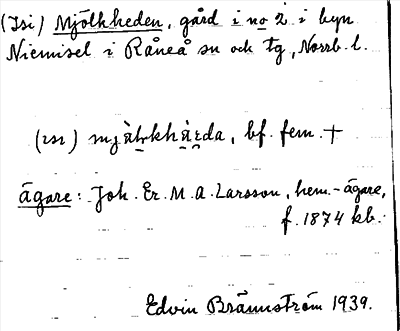 (Isi) Mjölkheden, gård i no 2 i byn
Niemisel i Råneå sn och tg, Norrb. l.
bf. fem. +
ägare: Joh. Er. M. A. Larsson, hem.-ägare,
f. 1874 kb.
Edvin Brännström 1939.